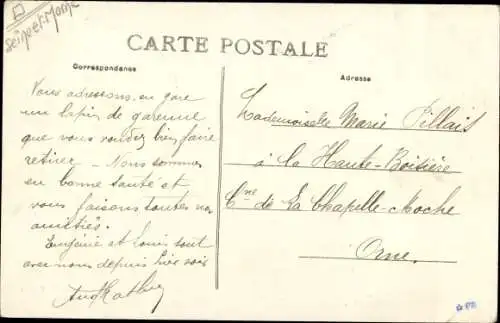 Seine et Marne
CARTE POSTALE
Correspondance
Adresse
Vous adressons, en gare
un lapin de garenne
que vous voudez bien faire
retirer – Nous sommes
en bonne santé et
vous faisons toutes nos
amitiés.
Eugénie et Louis sont
avec nous depuis hier soir
Mademoiselle Marie Pillais
à la Haute-Boitière
Cne de La Chapelle-Moche
Orne.